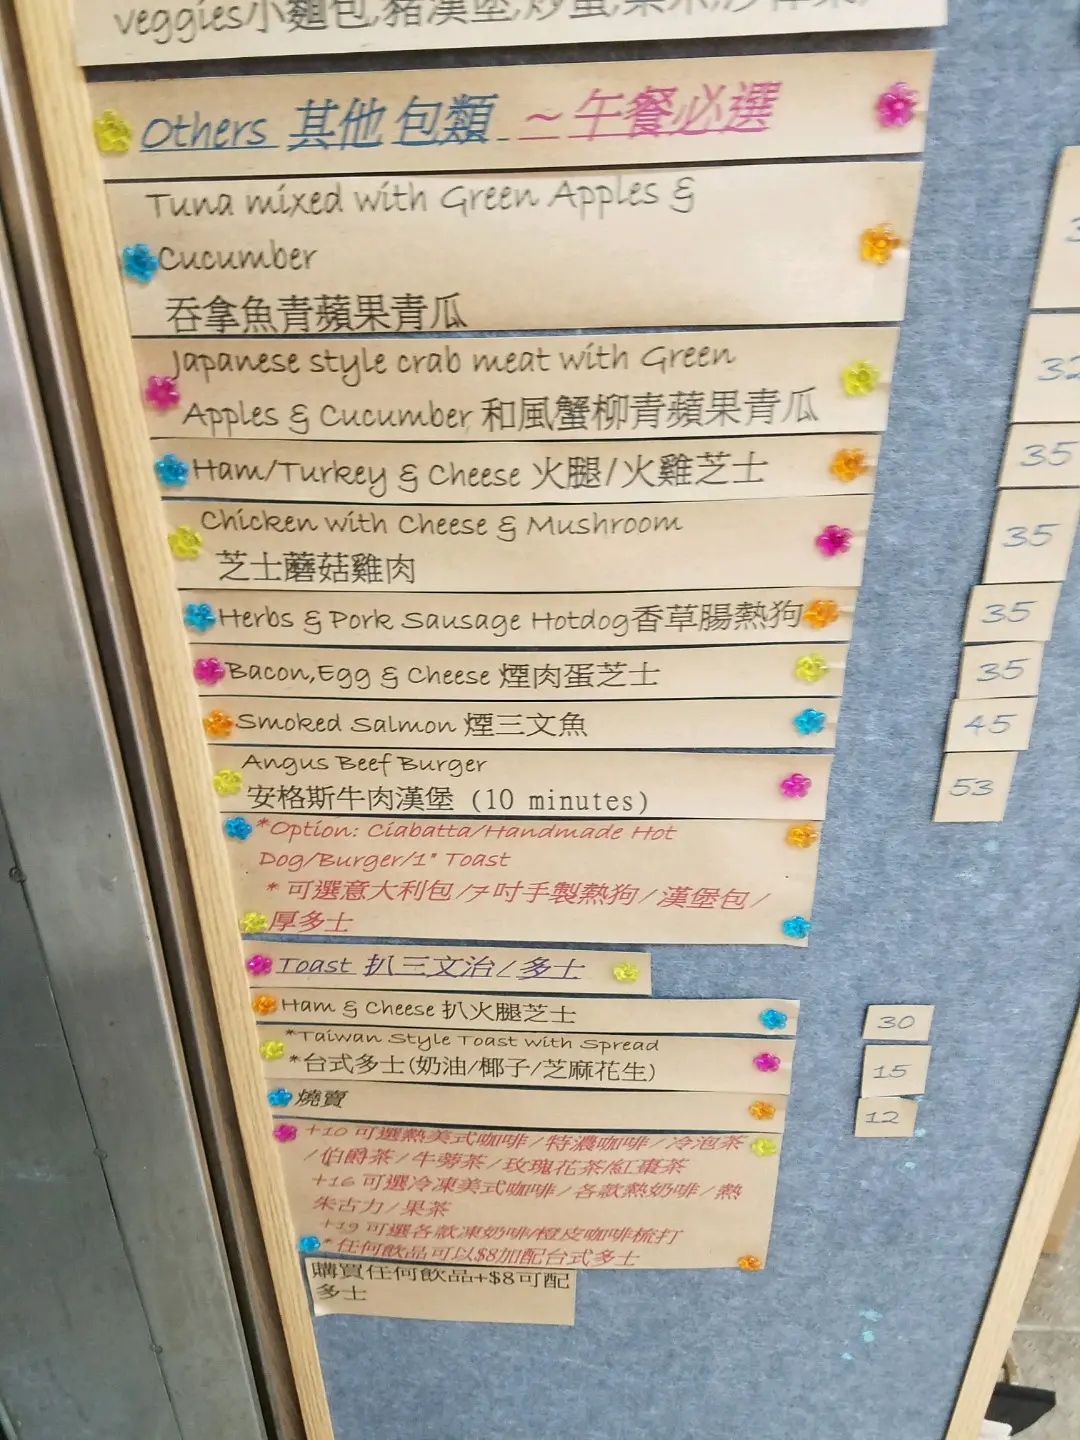 veggies小麵包,豬漢堡,炒蛋,
Others 其他包類 ~午餐必選
Tuna mixed with Green Apples &
Cucumber
吞拿魚青蘋果青瓜
Japanese style crab meat with Green
Apples & Cucumber 和風蟹柳青蘋果青瓜
32
Ham/Turkey & Cheese 火腿/火雞芝士
35
Chicken with Cheese & Mushroom
芝士蘑菇雞肉
35
Herbs & Pork Sausage Hotdog香草腸熱狗
35
Bacon,Egg & Cheese 煙肉蛋芝士
35
Smoked Salmon 煙三文魚
45
Angus Beef Burger
安格斯牛肉漢堡 (10 minutes)
53
*Option: Ciabatta/Handmade Hot
Dog/Burger/1" Toast
* 可選意大利包/7吋手製熱狗/漢堡包/
厚多士
Toast 扒三文治/多士
Ham & Cheese 扒火腿芝士
30
*Taiwan Style Toast with Spread
*台式多士(奶油/椰子/芝麻花生)
15
燒賣
12
+10 可選熱美式咖啡/特濃咖啡/冷泡茶
/伯爵茶/牛蒡茶/玫瑰花茶/紅棗茶
+16 可選冷凍美式咖啡/各款熱奶啡/熱
朱古力/果茶
+19 可選各款凍奶啡/橙皮咖啡梳打
*任何飲品可以$8加配台式多士
購買任何飲品+$8可配
多士